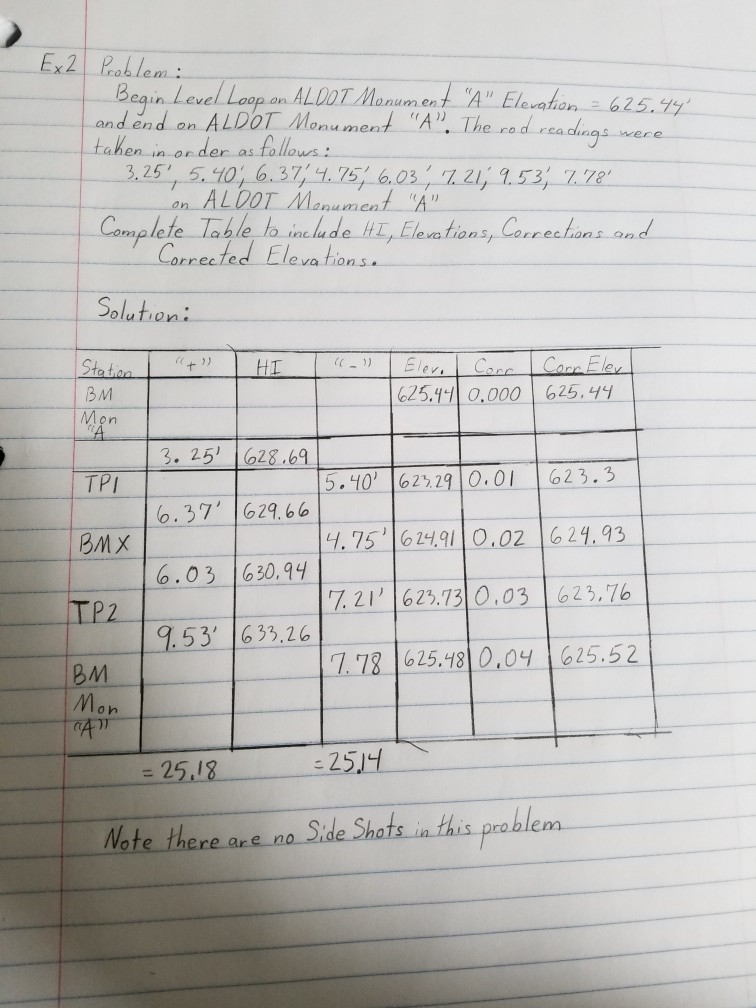 Ex2 Problem:
Begin Level Loop on ALDOT Monument "A" Elevation = 625.44'
and end on ALDOT Monument "A". The rod readings were
taken in order as follows:
3.25', 5.40', 6.37', 4.75', 6.03', 7.21', 9.53', 7.78'
on ALDOT Monument "A"
Complete Table to include HI, Elevations, Corrections and
Corrected Elevations.
Solution:
Station "+" HI "-" Elev. Corr Corr Elev
BM 625.44 0.000 625.44
Mon
"A
3.25' 628.69
TP1 5.40' 623.29 0.01 623.3
6.37' 629.66
BMX 4.75' 624.91 0.02 624.93
6.03 630.94
TP2 7.21' 623.73 0.03 623.76
9.53' 633.26
BM 7.78 625.48 0.04 625.52
Mon
"A"
= 25.18 = 25.14
Note there are no Side Shots in this problem